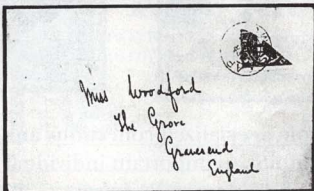 Miss Woodford
The Grove
Gravesend
England